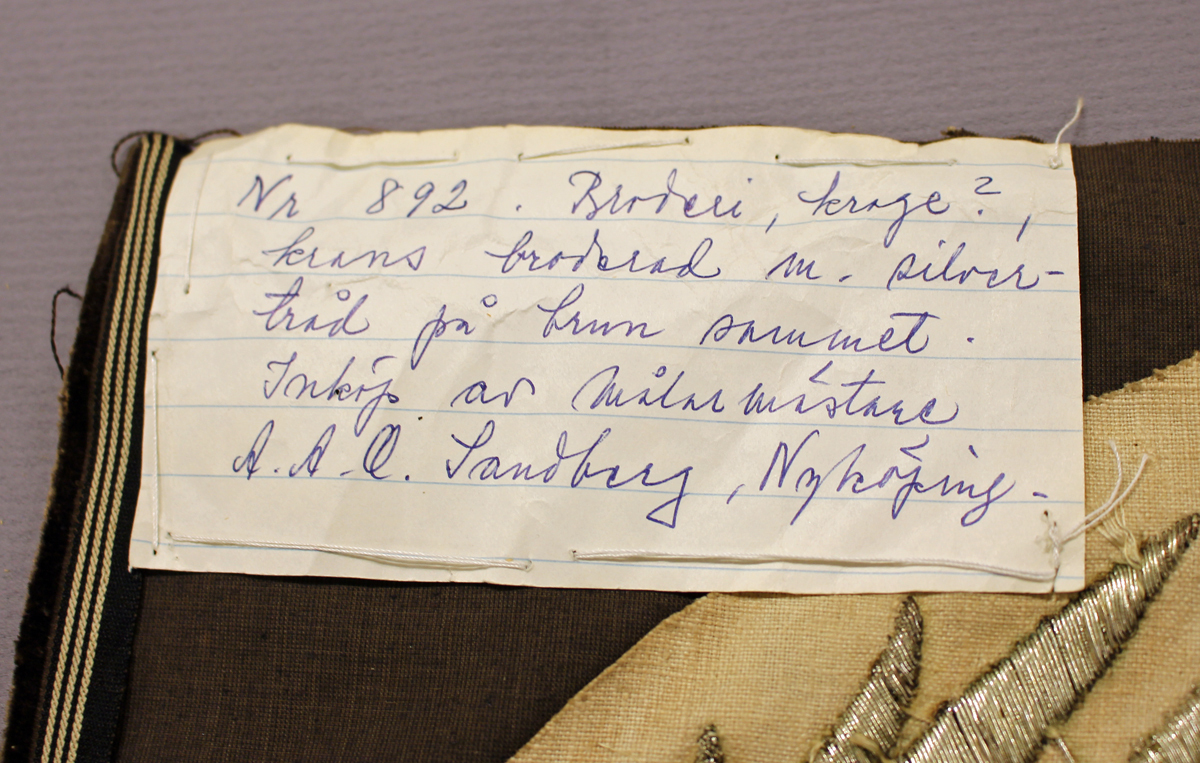 Nr 892. Broderi, krage?,
krans broderad m. silver-
tråd på brun sammet.
Inköp av Målarmästare
A. A-O. Sandberg, Nyköping-